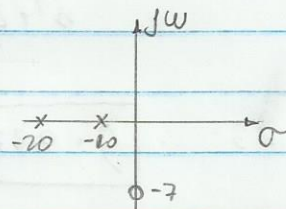 jw
-20 -10
σ
-7